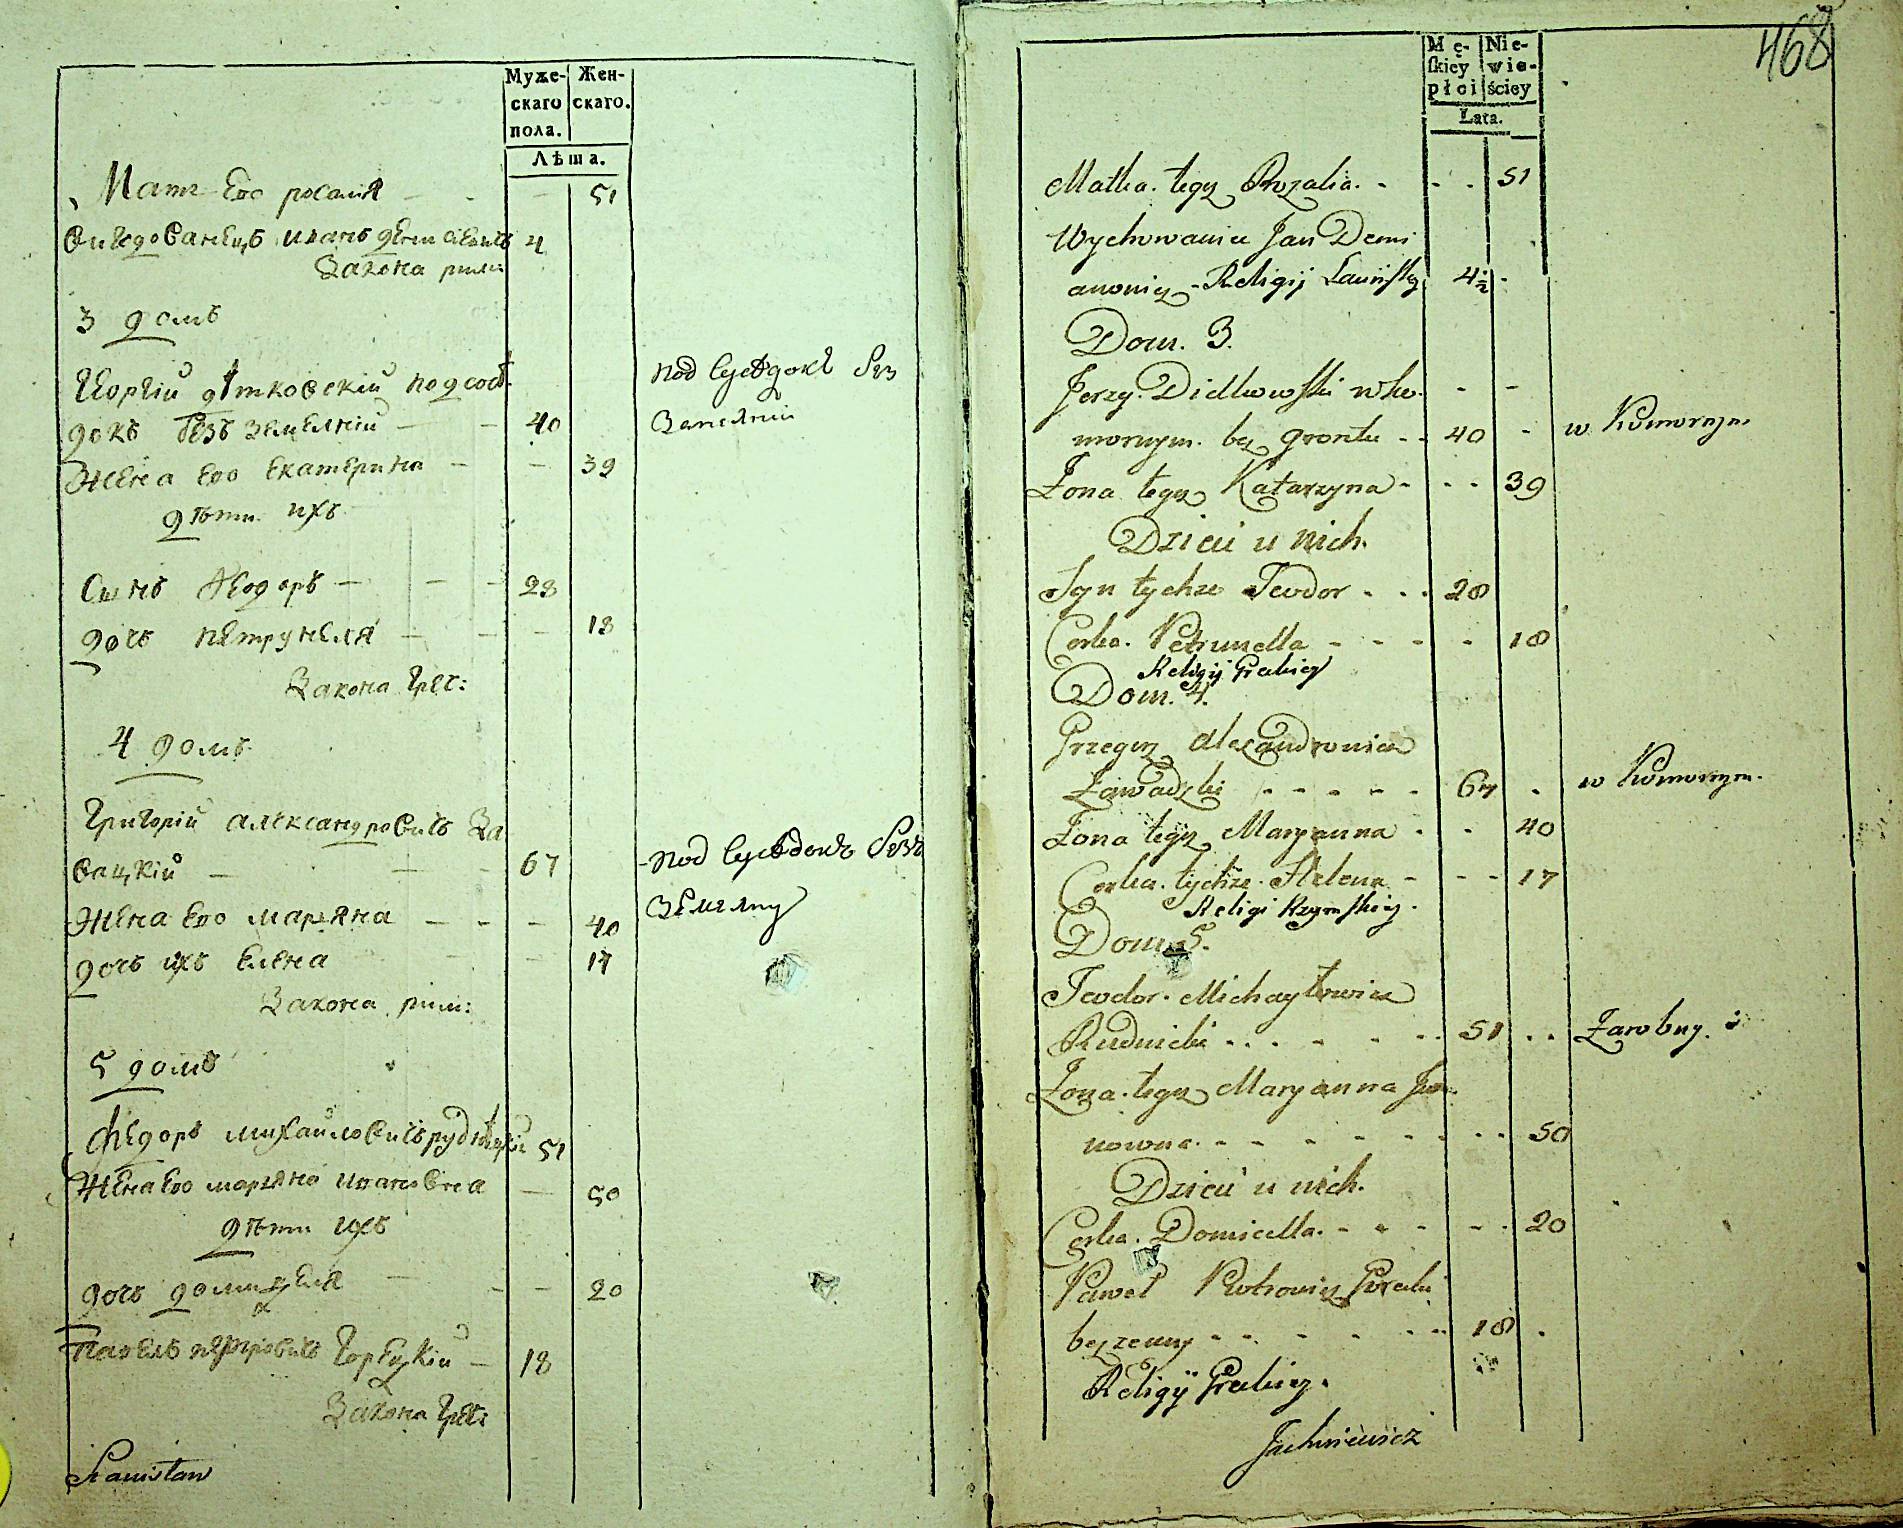 Муже-
скаго
пола.
Жен-
скаго.
Лѣта.
Мать Его росалия 51
Викгдованецъ иванъ 4
Закона рим:
3 домъ
Георгій дѣтковскій подсосѣ-
докъ безъ земелній 40
под Сусѣдокъ без
Земляній
Жена Его Екатерина 39
дѣти ихъ
Сынъ Ѳеодоръ 28
дочь пѣтрунеля 18
Закона Греч:
4 домъ
Григорій александровичъ За
вацкій 67
под Сусѣдокъ безъ
Земляну
Жена Его марѣяна 40
дочь ихъ Елена 17
Закона рим:
5 домъ
Федоръ михайловичъ рудницкій 51
Жена Его марѣяна ивановна 50
дѣти ихъ
дочь домицеля 20
Павелъ петровичъ Горецкій 18
Закона Греч:
Stanisław
468
Mę-
skiey
płci
Nie-
wie-
ściey
Lata.
Matka tegoz Rozalia 51
Wychowaniec Jan Demi
anowicz Religij Łacińskiey 4 1/2
Dom 3.
Jerzy Didkowski w ko-
mornym bez gruntu 40 w Komornym
Żona tegoz Katarzyna 39
Dzieci u nich.
Syn tychze Teodor 28
Corka Petrunella 18
Religij Greckiey
Dom 4.
Grzegorz Alexandrowicz
Zawadzki 67 w Komornym.
Żona tegoz Maryanna 40
Corka tychże Helena 17
Religi Rzymskiey.
Dom 5.
Teodor Michayłowicz
Rudnicki 51 Zarobny.
Żona tegoz Maryanna Jwa-
nowna 50
Dzieci u nich.
Corka Domicella 20
Paweł Piotrowicz Gorecki
bezzenny 18
Religij Greckiey.
Juchniewicz